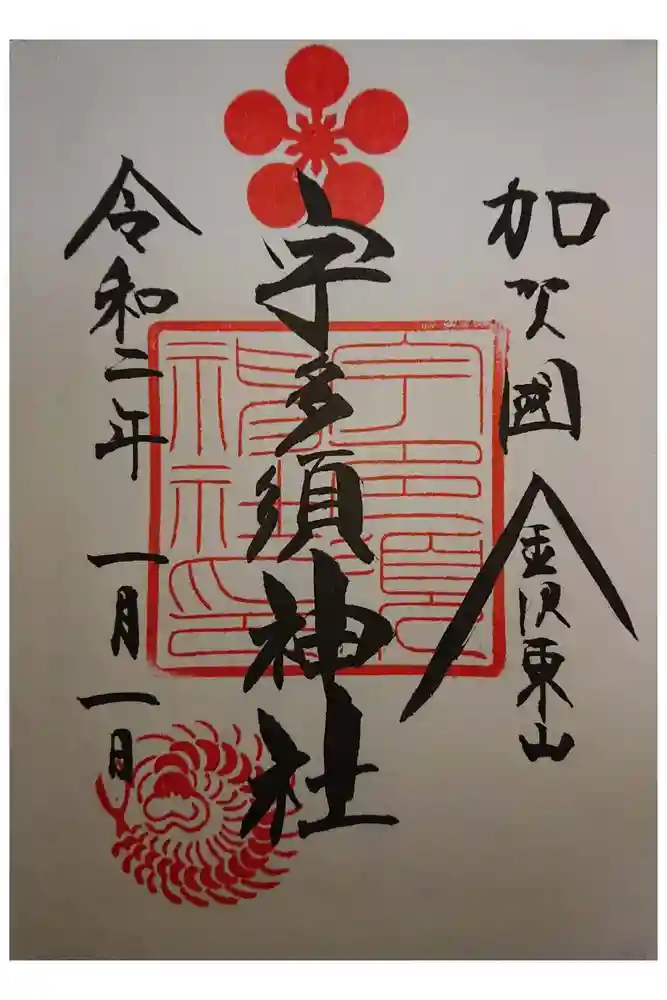 加賀國
金沢東山
宇多須神社
令和二年
一月一日